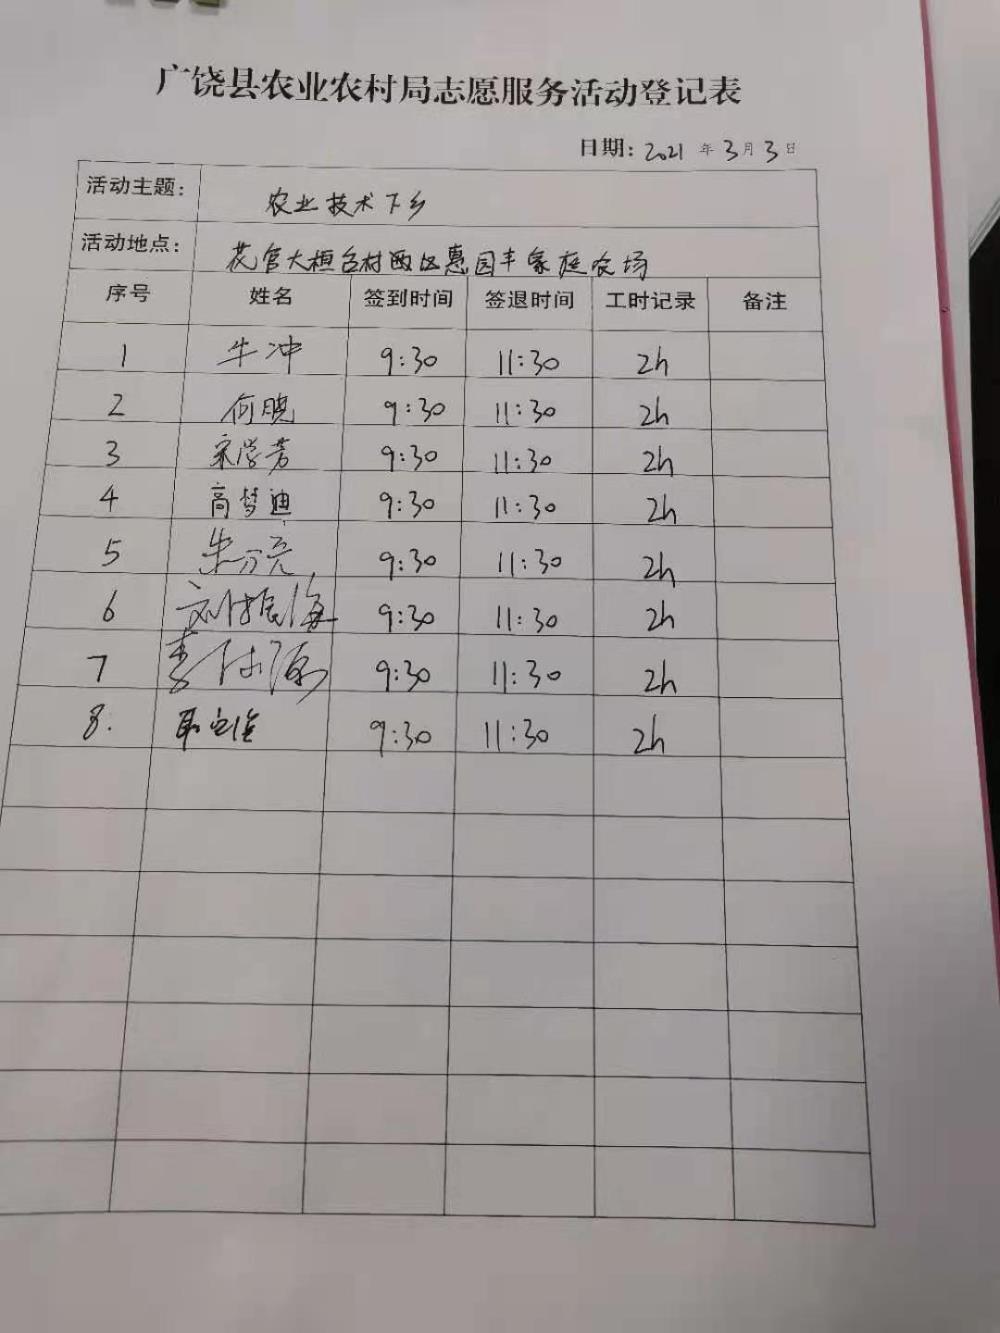 广饶县农业农村局志愿服务活动登记表
日期: 2021 年 3 月 3 日
活动主题: 农业技术下乡
活动地点: 花官大桓台村西区惠园丰家庭农场
序号 姓名 签到时间 签退时间 工时记录 备注
1 牛冲 9:30 11:30 2h
2 何晓 9:30 11:30 2h
3 宋学芳 9:30 11:30 2h
4 高梦迪 9:30 11:30 2h
5 9:30 11:30 2h
6 刘振海 9:30 11:30 2h
7 李 9:30 11:30 2h
8. 9:30 11:30 2h